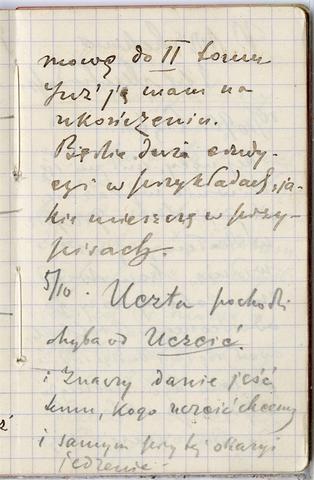 mowę do II tomu
Już ją mam na
ukończeniu.
Będzie dużo erudy-
cyi w przykładach, ja-
kie mieszczę w przy-
pisach.
5/10. Uczta pochodzi
chyba od Uczcić.
i Znaczy danie jeść
temu, kogo uczcić chcemy
i samym przy tej okazyi
jedzenie -